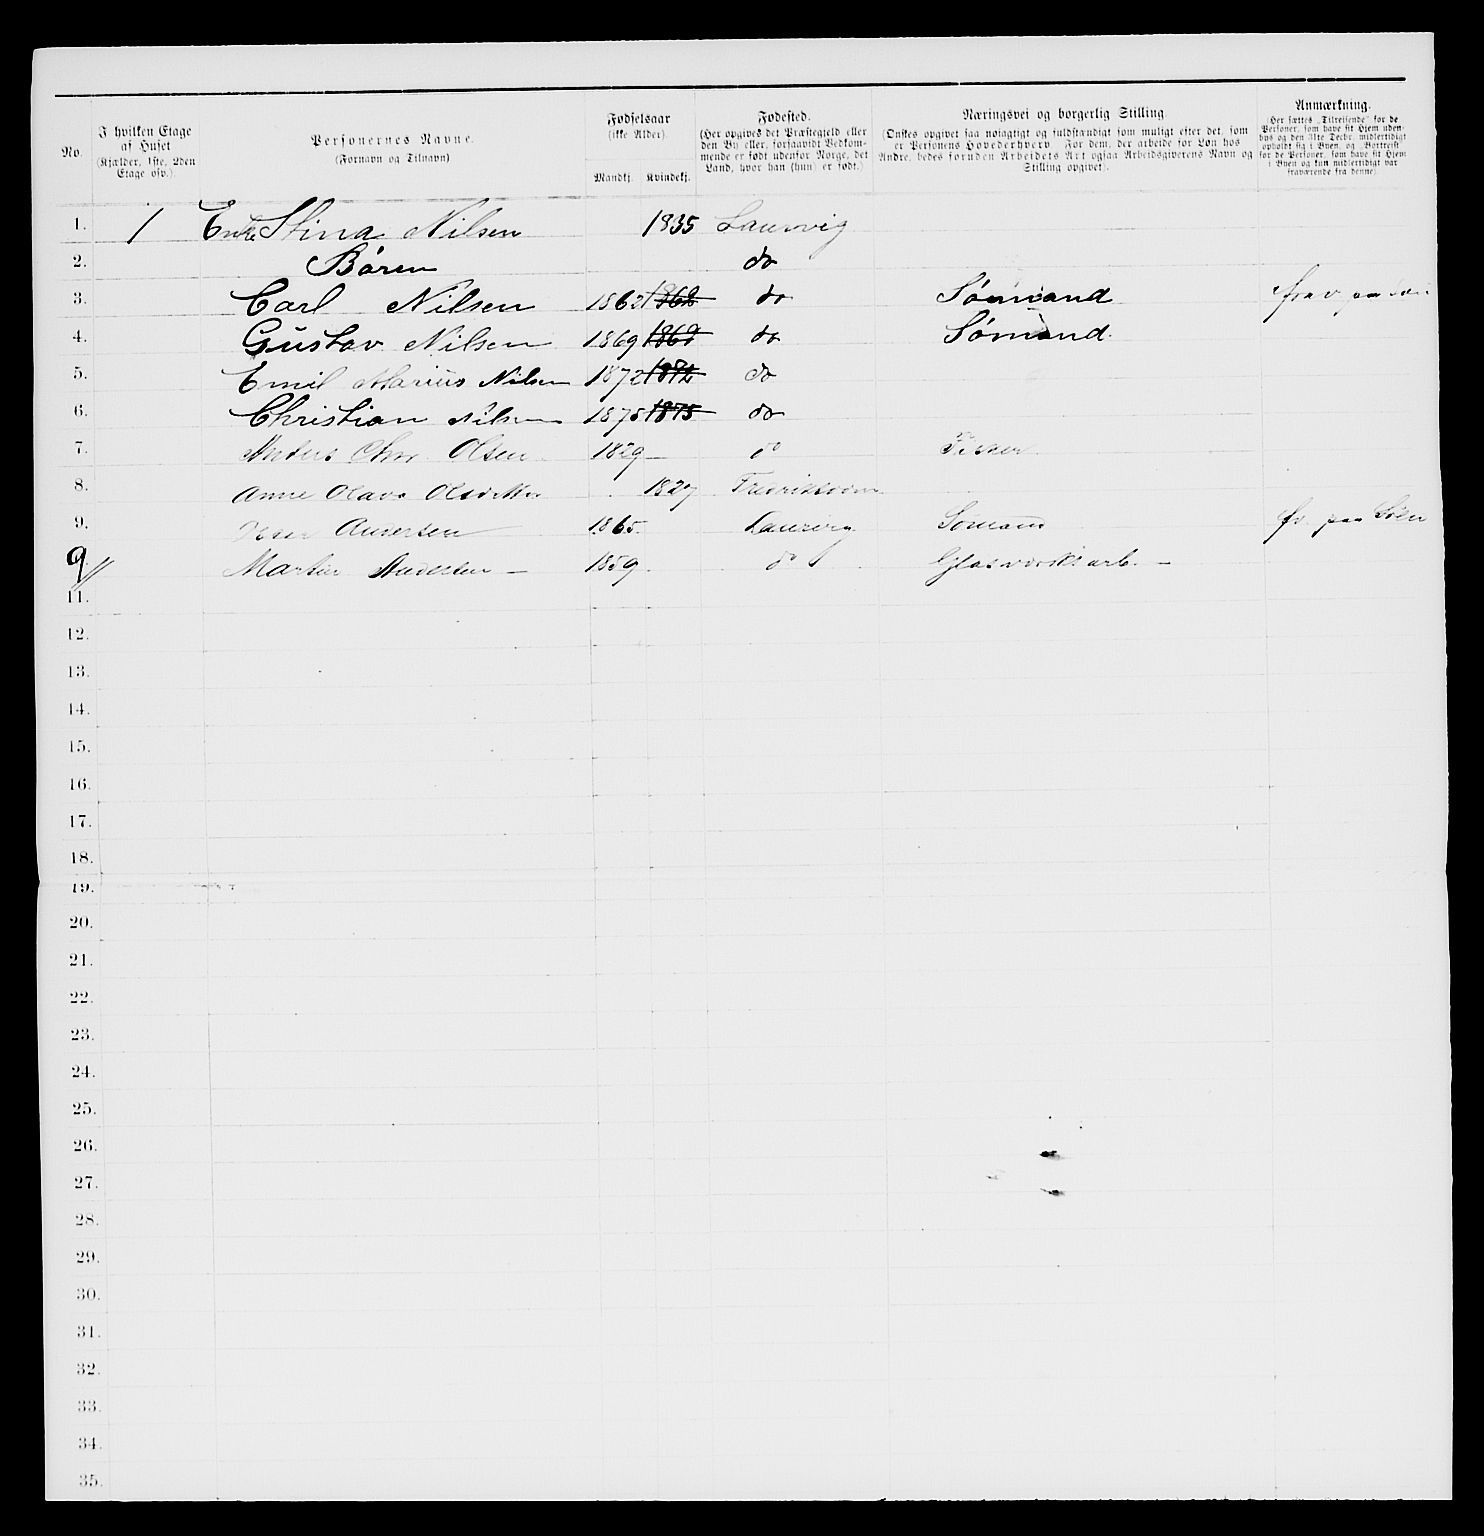 No.
I hvilken Etage af Huset (Kjælder, 1ste, 2den Etage osv.).
Personernes Navne. (Fornavn og Tilnavn)
Fødselsaar (ikke Alder). Mandkj. Kvindekj.
Fødested. (Her opgives det Præstegjeld eller den By eller, forsaavidt Vedkommende er født udenfor Norge, det Land, hvor han (hun) er født.)
Næringsvei og borgerlig Stilling. (Ønskes opgivet saa nøiagtigt og fuldstændigt som muligt efter det, som er Personens Hovederhverv For dem, der arbeide for Løn hos Andre, bedes foruden Arbeidets Art ogsaa Arbeidsgiverens Navn og Stilling opgivet).
Anmærkning. (Her sættes „Tilreisende" for de Personer, som have sit Hjem udenbys og den 31te Decbr. midlertidigt opholdt sig i Byen, og „Bortreist" for de Personer, som have sit Hjem i Byen og kun midlertidigt var fraværende fra denne).
1. 1 Enke Stina Nilsen 1835 Laurvig
2. Bören do
3. Carl Nilsen 1862 1862 do Sömand frav. paa
4. Gustav Nilsen 1869 1869 do Sömand.
5. Emil Marius Nilsen 1872 1872 do
6. Christian Nilsen 1875 1875 do
7. Anders Chr. Olsen 1829 — do Fisker
8. Anne Olava 1827
9. Andersen 1865. Laurvig Sömand fr. paa Söen
9 Martin Andersen — 1859. do Glasværksarb. —
11.
12.
13.
14.
15.
16.
17.
18.
19.
20.
21.
22.
23.
24.
25.
26.
27.
28.
29.
30.
31.
32.
33.
34.
35.